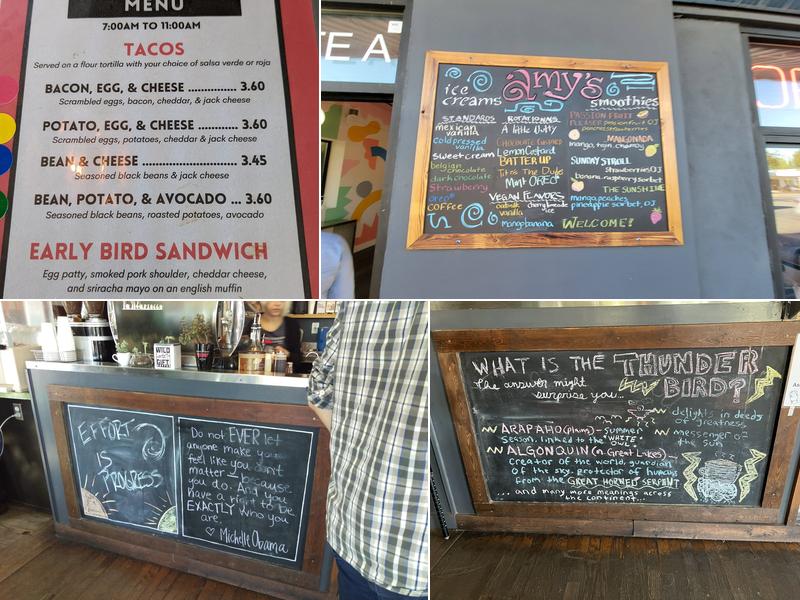 MENU
7:00AM TO 11:00AM
TACOS
Served on a flour tortilla with your choice of salsa verde or roja
BACON, EGG, & CHEESE .............. 3.60
Scrambled eggs, bacon, cheddar, & jack cheese
POTATO, EGG, & CHEESE ............ 3.60
Scrambled eggs, potatoes, cheddar & jack cheese
BEAN & CHEESE ........................... 3.45
Seasoned black beans & jack cheese
BEAN, POTATO, & AVOCADO ... 3.60
Seasoned black beans, roasted potatoes, avocado
EARLY BIRD SANDWICH
Egg patty, smoked pork shoulder, cheddar cheese,
and sriracha mayo on an english muffin
TEA
amy's
ice
creams
smoothies
STANDARDS
mexican
vanilla
cold pressed
vanilla
sweet cream
belgian
chocolate
dark chocolate
Strawberry
oreo
coffee
ROTATIONALS
A little Nutty
CHOCOLATE CUSTARD
Lemon Custard
BATTER UP
Tito's The Dude
Mint OREO
VEGAN FLAVORS
oatmilk
vanilla
cherry limeade
ice
Mango banana
PASSION FRUIT
PLEASER
passionfruit OJ
MANGONADA
mango, tajin, chamoy
SUNDAY STROLL
banana, raspberry sorbet
THE SUNSHINE
mango, peaches
pineapple sorbet, OJ
WELCOME!
EFFORT
IS
PROGRESS
WILD
GIFT
Do not EVER let
anyone make you
feel like you don't
matter... because
you do. And you
have a right to be
EXACTLY who you
are.
♡ Michelle Obama
WHAT IS THE THUNDER
BIRD?
the answer might
surprise you...
delights in deeds
of greatness
ARAPAHO (plains) - summer
season. linked to the "WHITE
OWL"
messenger of
the sun
ALGONQUIN (n. Great Lakes) -
creator of the world, guardian
of the sky, protector of humans
from the GREAT HORNED SERPENT
... and many more meanings across
the continent...